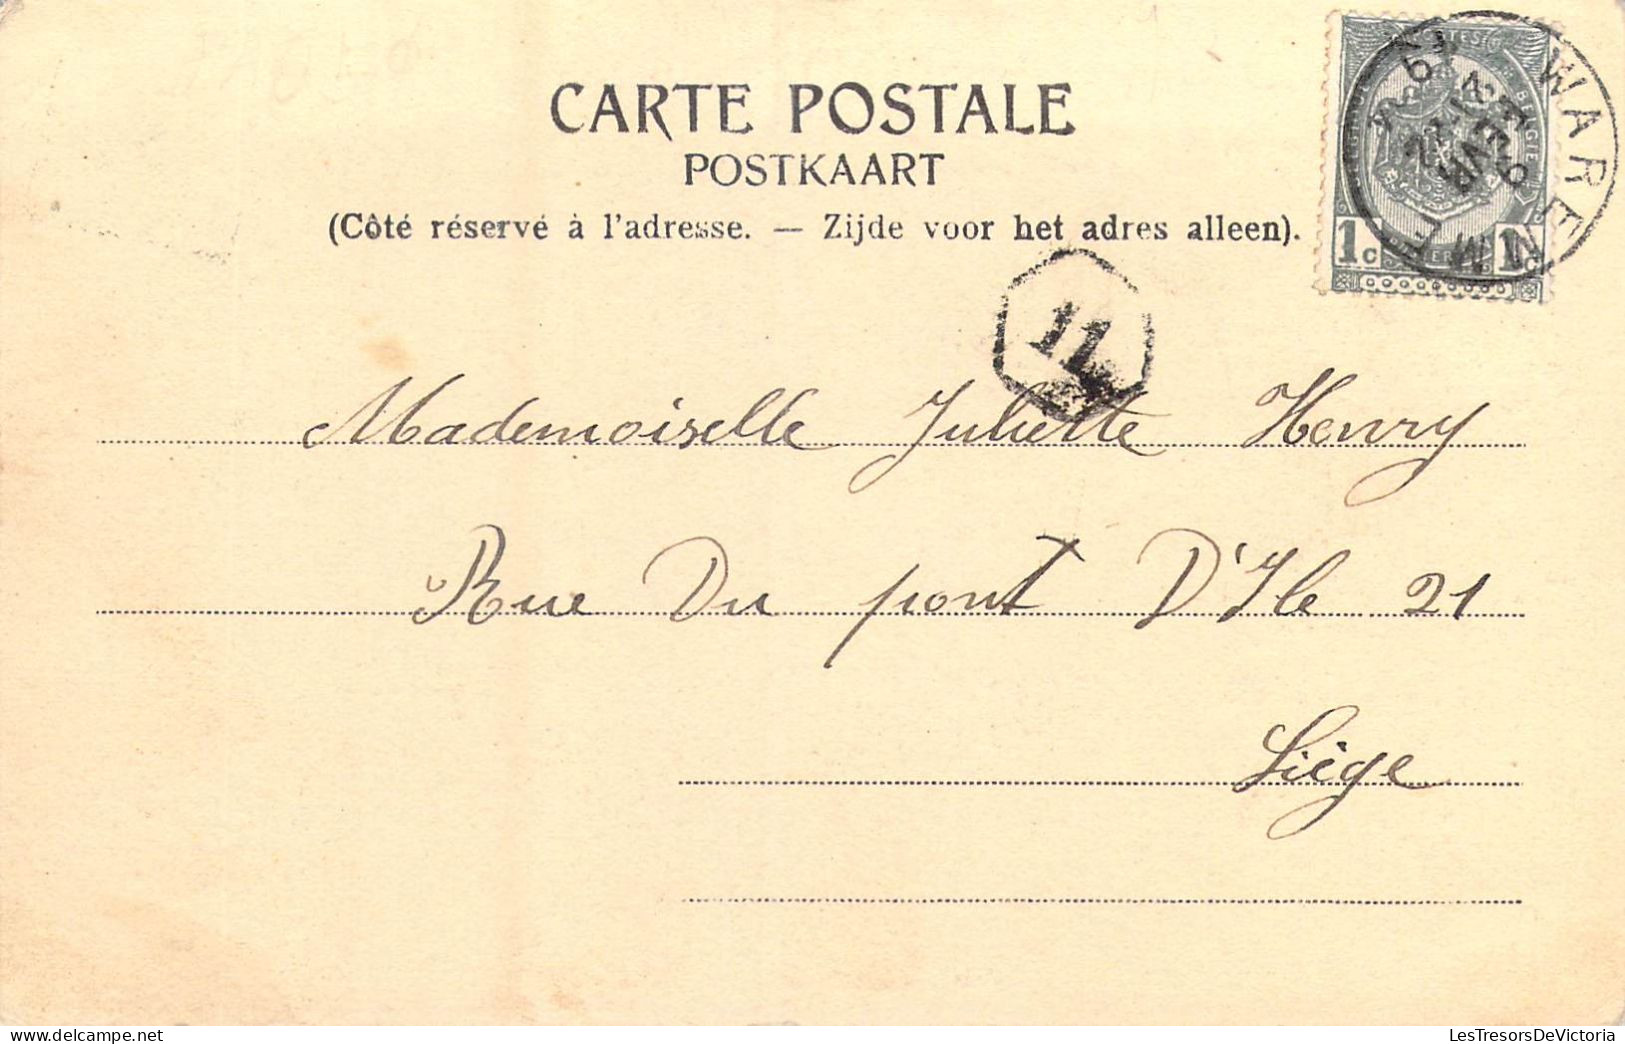 CARTE POSTALE
POSTKAART
(Côté réservé à l'adresse. — Zijde voor het adres alleen).
WAREMME
1c 1c
11
Mademoiselle Juliette Henry
Rue Du pont D'Ile 21
Liège
delcampe.net
LesTresorsDeVictoria